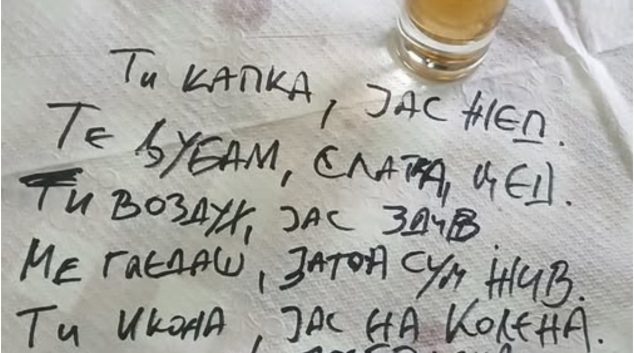 Ти КАПКА, ЈАС ЖЕД.
ТЕ ЉУБАМ, СЛАТКА, ЦЕД.
ТИ ВОЗДУХ, ЈАС ЗДИВ
МЕ ГЛЕДАШ, ЗАТОА СУМ ЖИВ.
Ти ИКОНА, ЈАС НА КОЛЕНА.